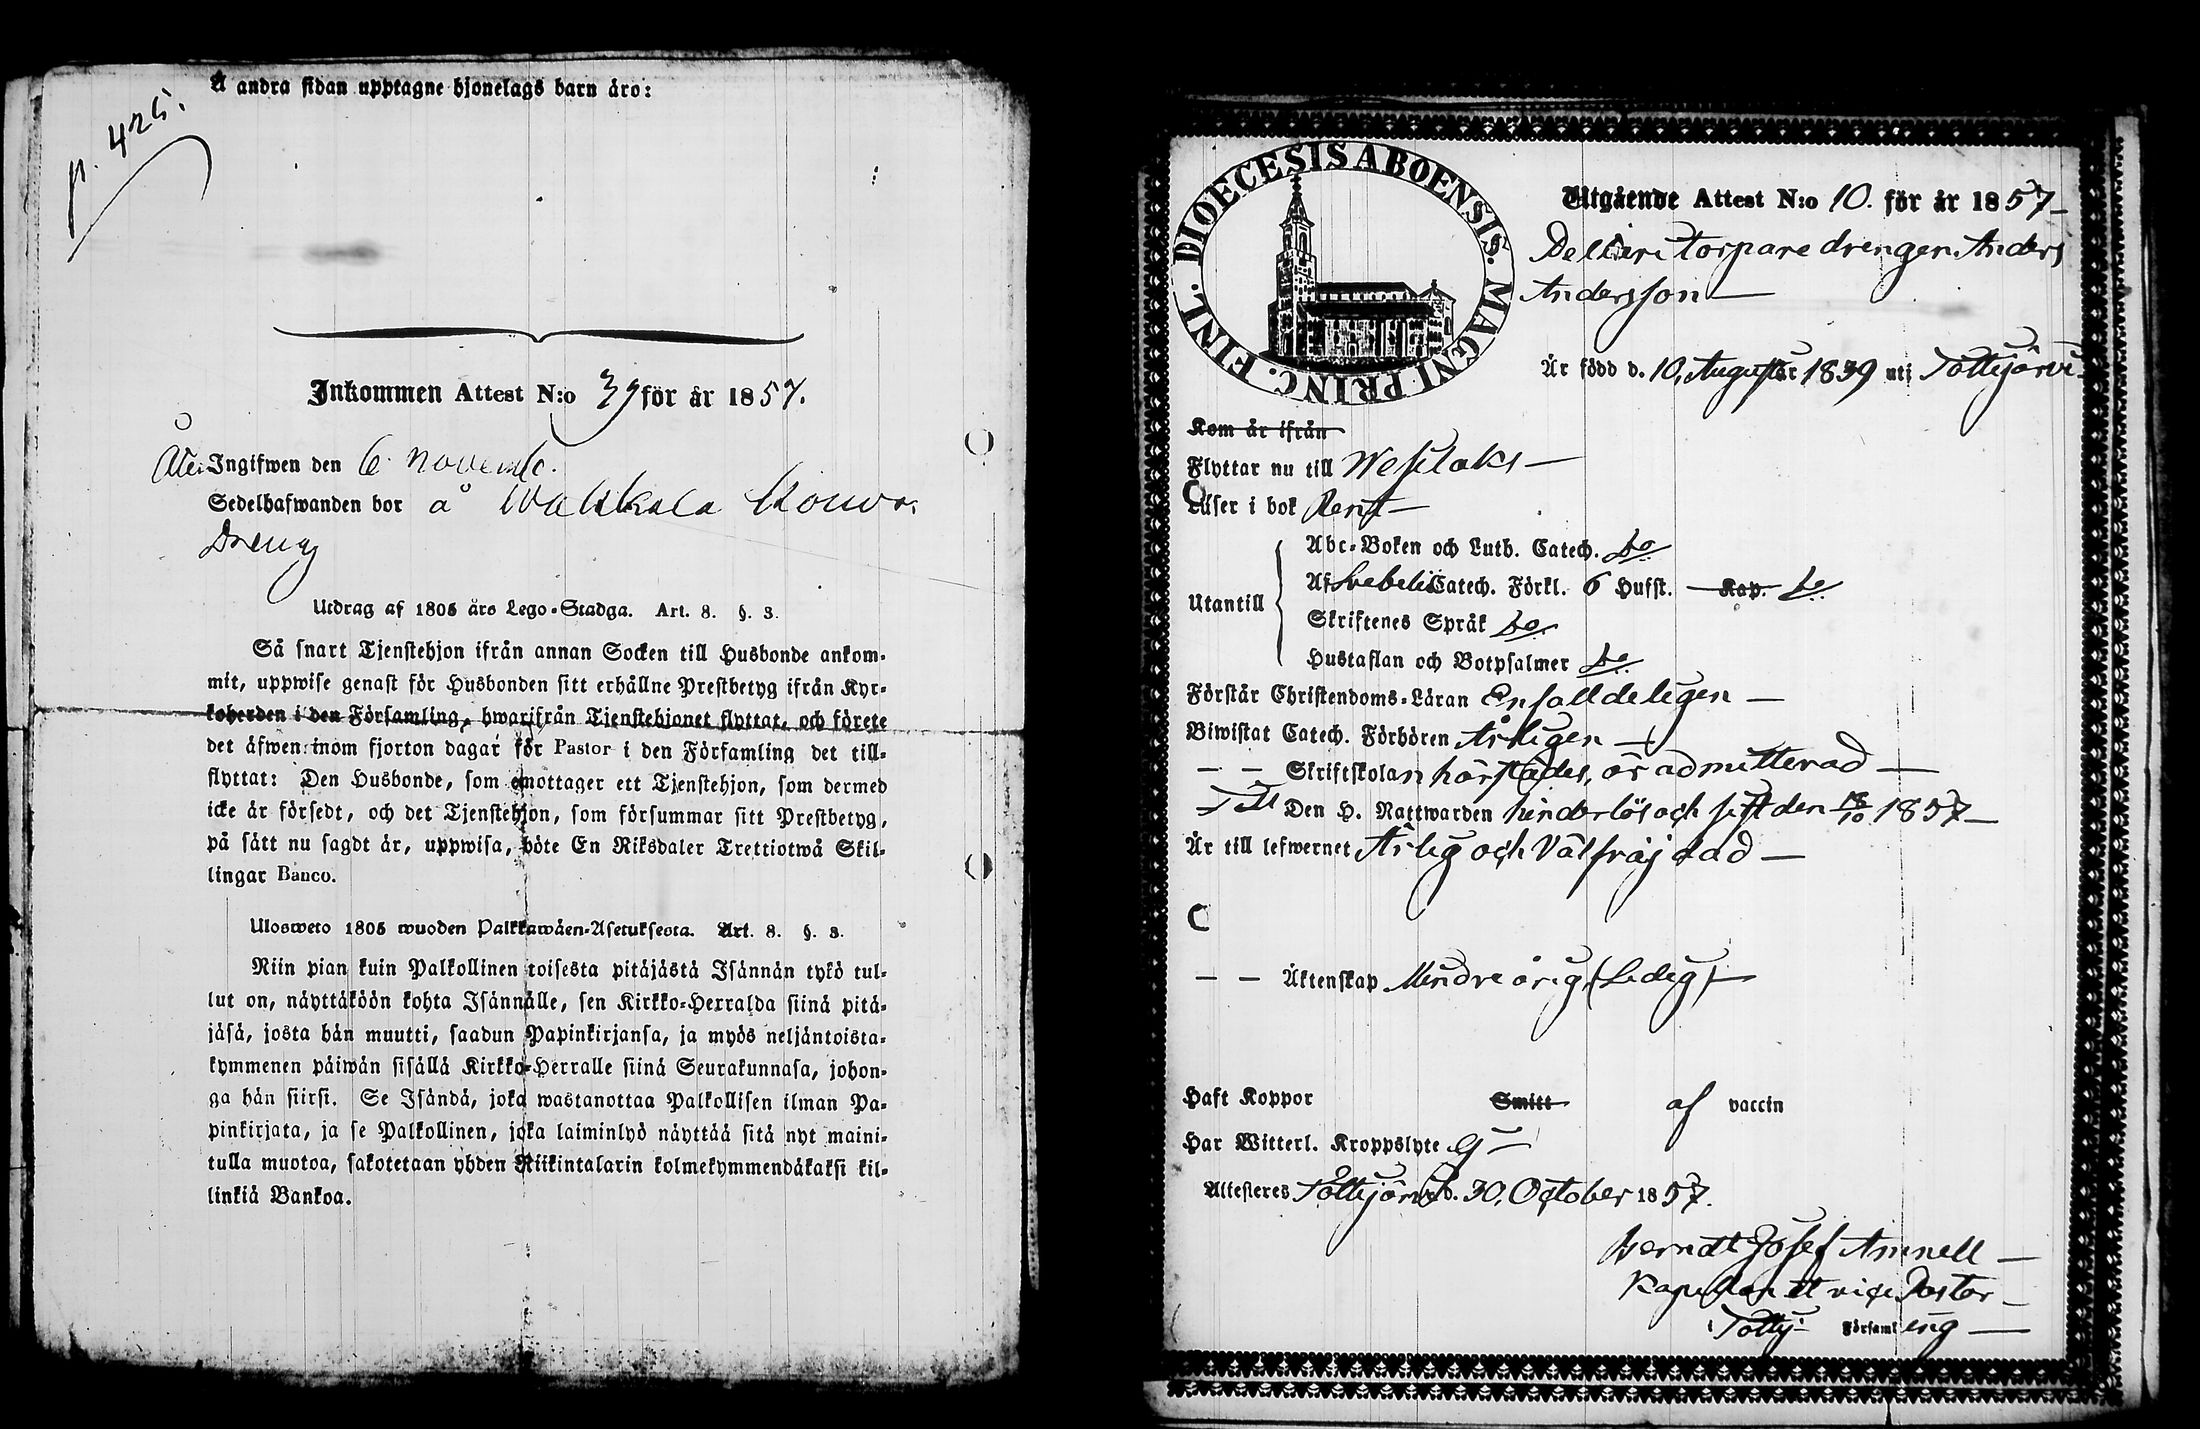 p. 425.
Å andra sidan upptagne hjonelags barn äro:
Inkommen Attest N:o 39 för år 1857.
Åter Ingifwen den 6 novemb.
Sedelhafwanden bor å Wahkala
Dreng
Utdrag af 1805 års Lego-Stadga. Art. 8. §. 3.
Så snart Tjenstehjon ifrån annan Socken till Husbonde ankom-
mit, uppwise genast för Husbonden sitt erhållne Prestbetyg ifrån Kyr-
koherden i den Församling, hwarifrån Tjenstehjonet flyttat, och förete
det äfwen inom fjorton dagar för Pastor i den Församling det till-
flyttat: Den Husbonde, som emottager ett Tjenstehjon, som dermed
icke är försedt, och det Tjenstehjon, som försummar sitt Prestbetyg,
på sätt nu sagdt är, uppwisa, böte En Riksdaler Trettiotwå Skil-
lingar Banco.
Ulosweto 1805 wuoden Palkkawäen-Asetuksesta. Art. 8. §. 3.
Niin pian kuin Palkollinen toisesta pitäjästä Isännän tykö tul-
lut on, näyttäköön kohta Isännälle, sen Kirkko-Herralda siinä pitä-
jäsä, josta hän muutti, saadun Papinkirjansa, ja myös neljäntoista-
kymmenen päiwän sisällä Kirkko-Herralle siinä Seurakunnasa, johon-
ga hän siirsi. Se Isändä, joka wastanottaa Palkollisen ilman Pa-
pinkirjata, ja se Palkollinen, joka laiminlyö näyttää sitä nyt maini-
tulla muotoa, sakotetaan yhden Riikintalarin kolmekymmendäkaksi kil-
linkiä Bankoa.
DIOECESIS ABOENSIS. MAGNI PRINC. FINL.
Utgående Attest N:o 10. för år 1857
torpare drengen Anders
Andersson
Är född d. 10, Augusti 1839 uti Tottijärvi
Kom år ifrån
Flyttar nu till Wesilaks
Läser i bok Rent
Utantill
Abc-Boken och Luth. Catech. do
Af Svebelii Catech. Förkl. 6 Hufst. Kap. do
Skriftenes Språk do
Hustaflan och Botpsalmer do
Förstår Christendoms-Läran Enfalldeligen
Biwistat Catech. Förhören Årligen
Skriftskolan härstädes, är admitterad
Till Den H. Nattwarden hinderlös och sist den 18/10 1857
Är till lefwernet Ärlig och Välfräjdad
Äktenskap Mindreårig, (Ledig)
Haft Koppor Smitt af vaccin
Har Witterl. Kroppslyte Ej
Attesteres Tottijärvi d. 30, October 1857.
Berndt Josef Amnell
Kapellan et vice Pastor
i Tottij: Församling